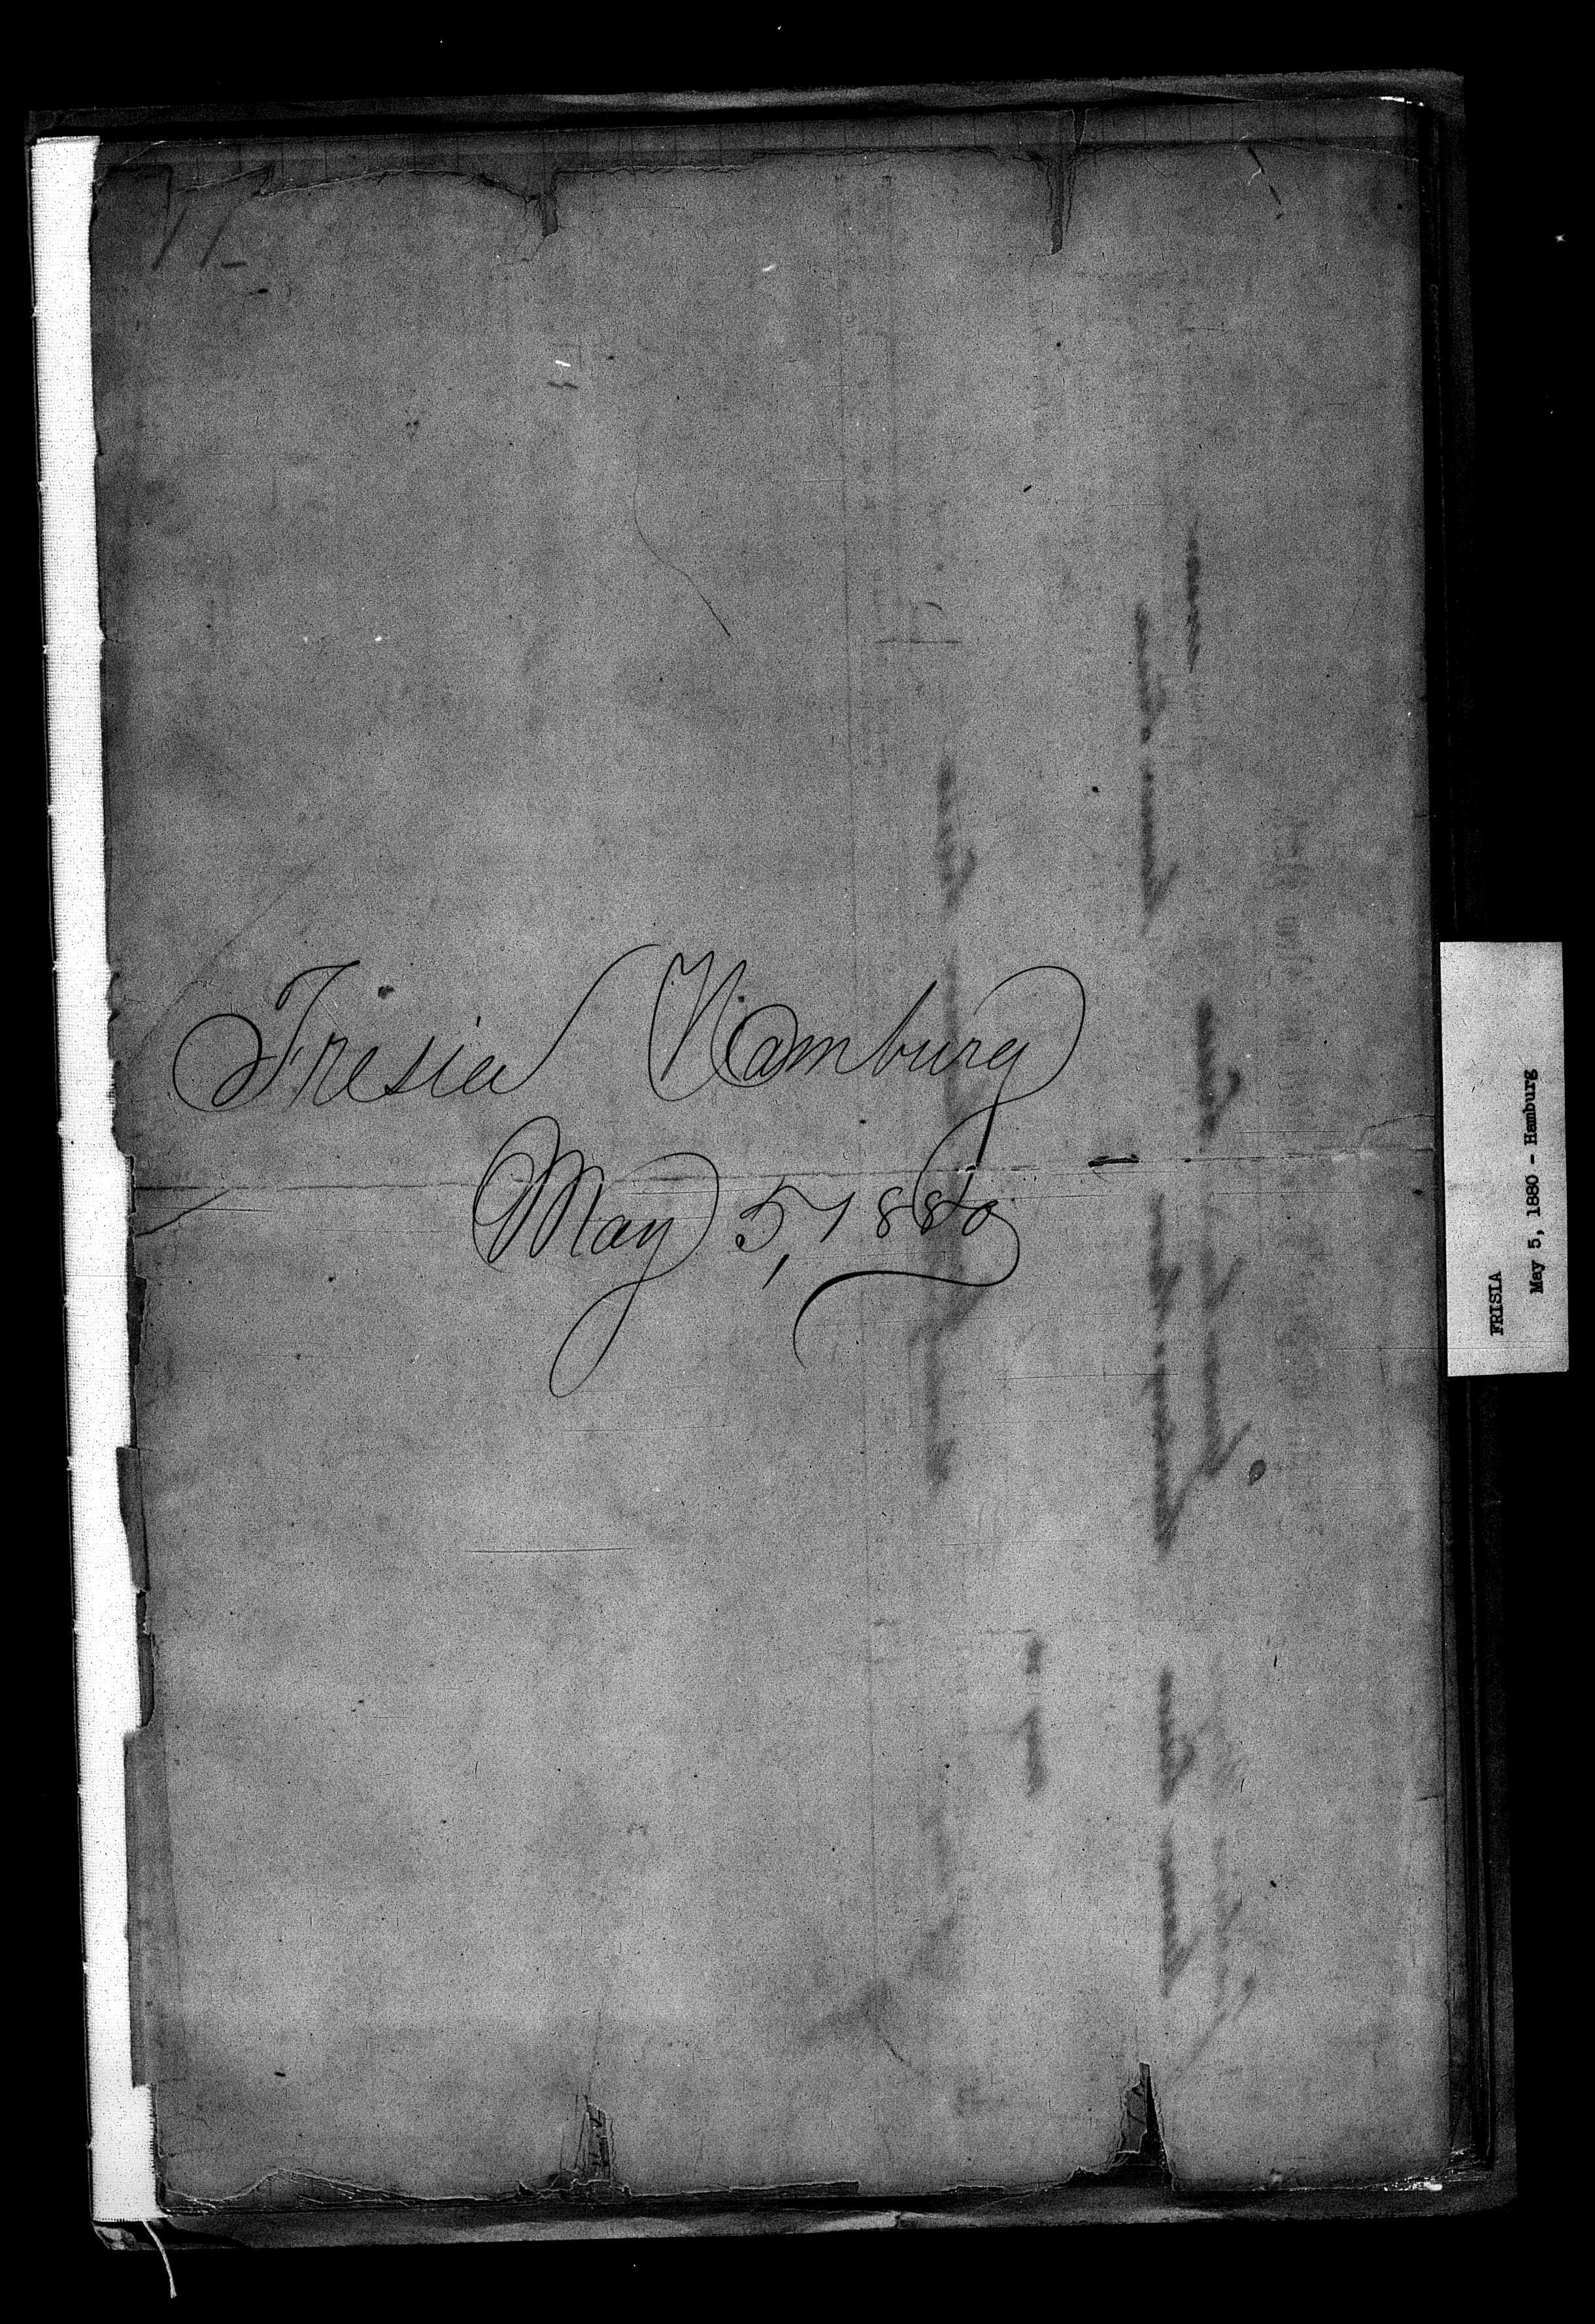 Frisia Hamburg
May 5, 1880
FRISIA
May 5, 1880 - Hamburg